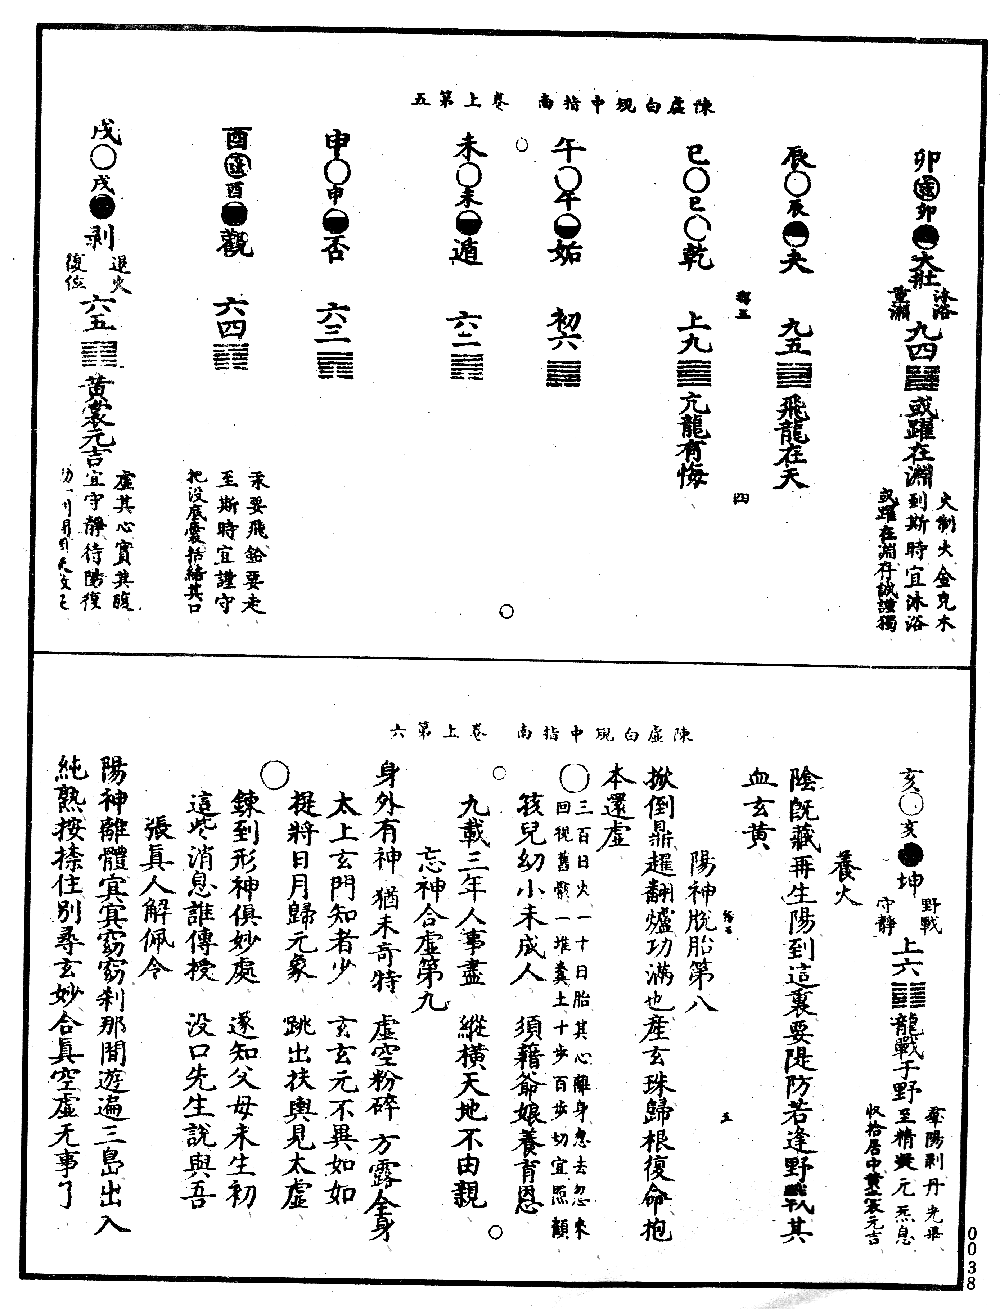 陳虛白規中指南 卷上第五
卯 還 卯 大壯 沐浴 九四 或躍在淵 火制火金克木
到斯時宜沐浴
或躍在淵存誠謹獨
辰 辰 夬 九五 飛龍在天
四
巳 巳 乾 上九 亢龍有悔
午 午 姤 初六
未 未 遁 六二
申 申 否 六三
酉 酉 觀 六四 汞要飛鉛要走
至斯時宜謹守
把沒底囊括結其口
戌 戌 剝 退火 復位 六五 黃裳元吉 虛其心實其腹
宜守靜待陽復
陳虛白規中指南 卷上第六
亥 亥 坤 野戰 守靜 上六 龍戰于野 羣陽剝丹光
至精凝元炁息
收拾居中黃裳元吉
養火
陰既藏再生陽到這裏要隄防若逢野戰其
血玄黃
陽神脫胎第八
五
掀倒鼎趯翻爐功滿也產玄珠歸根復命抱
本還虛
三百日火一十日胎其心離身忽去忽來
回視舊骸一堆糞土十步百步切宜照顧
孩兒幼小未成人 須藉爺娘養育恩
九載三年人事盡 縱橫天地不由親
忘神合虛第九
身外有神猶未奇特 虛空粉碎方露全身
太上玄門知者少 玄玄元不異如如
提將日月歸元象 跳出扶輿見太虛
鍊到形神俱妙處 遂知父母未生初
這些消息誰傳授 沒口先生說與吾
張真人解佩令
陽神離體㝠㝠窈窈刹那間遊遍三島出入
純熟按捺住別尋玄妙合真空虛无事了
0038